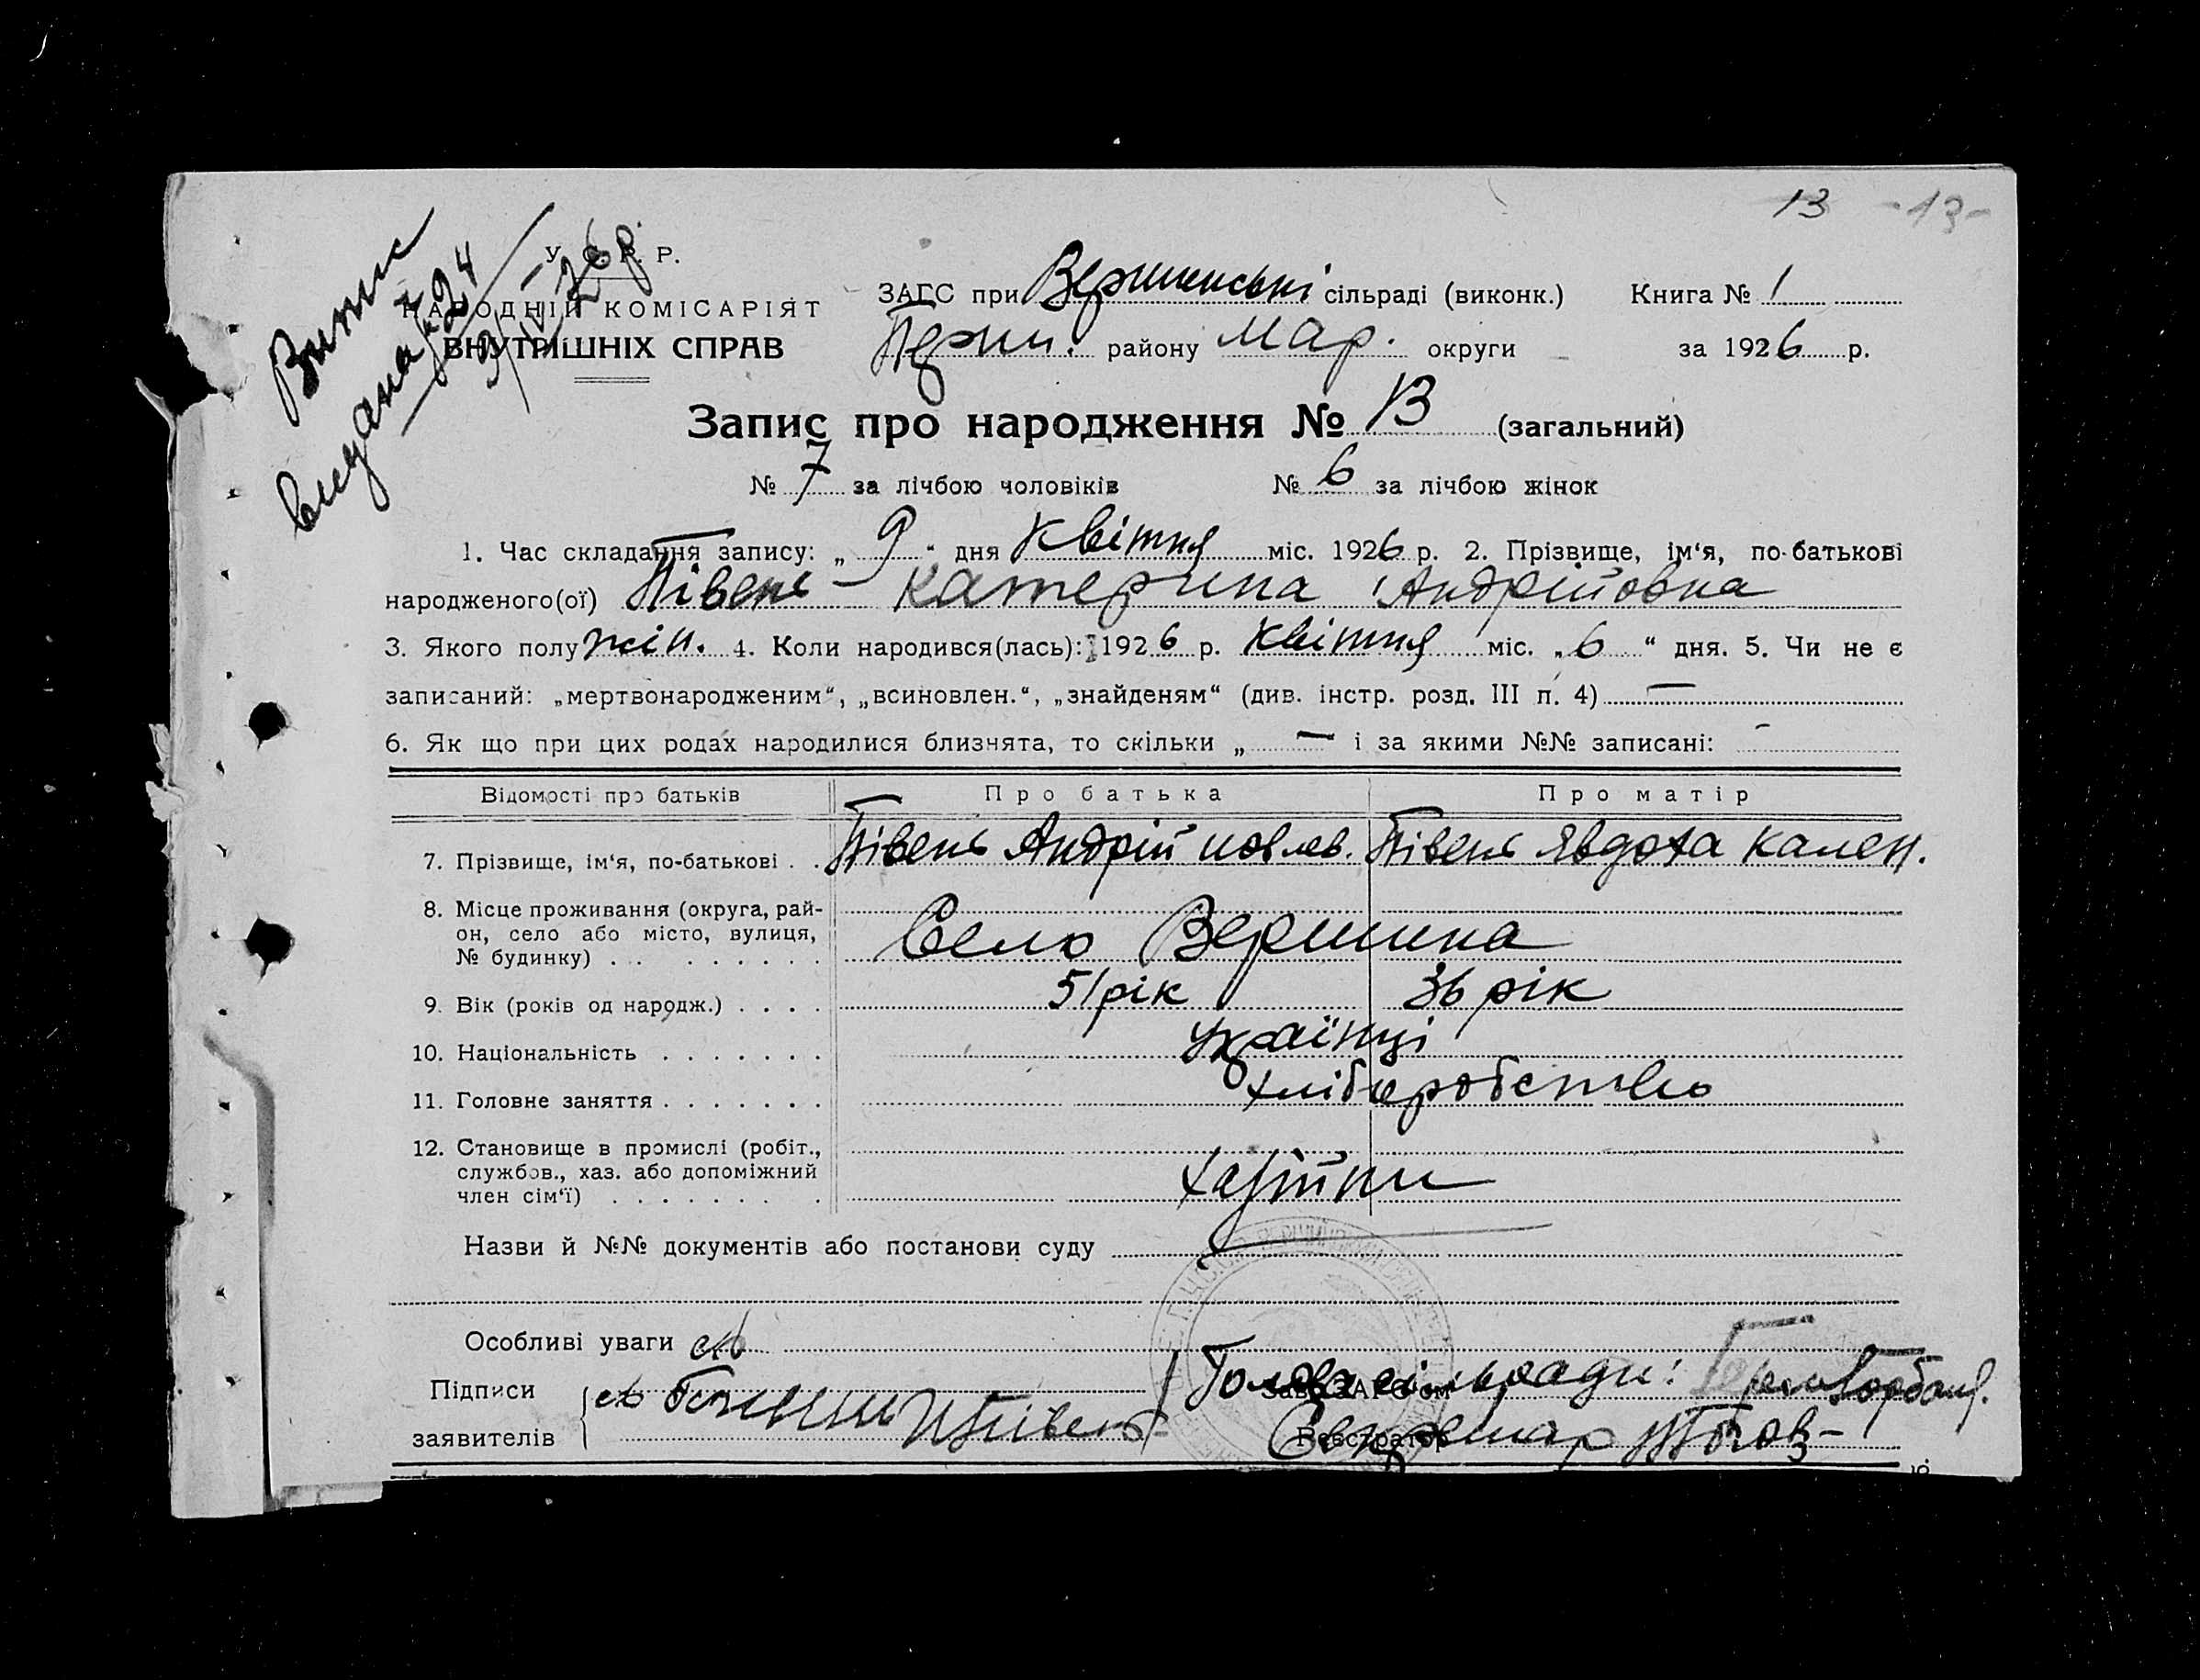 13 -13-
Витяг
видана № 24
9/IV-26р.
У. С. Р. Р.
НАРОДНІЙ КОМІСАРІЯТ
ВНУТРІШНІХ СПРАВ
ЗАГС при Вершинські сільраді (виконк.) Книга № 1
району Мар. округи за 1926 р.
Запис про народження № 13 (загальний)
№ 7 за лічбою чоловіків № 6 за лічбою жінок
1. Час складання запису: „ 9 “ дня Квітня міс. 1926 р. 2. Прізвище, ім'я, по-батькові
народженого(ої) Півень Катерина Андрійовна
3. Якого полу жін. 4. Коли народився(лась): 1926 р. Квітня міс. „ 6 “ дня. 5. Чи не є
записаний: „мертвонародженим“, „всиновлен.“, „знайденям“ (див. інстр. розд. III п. 4) —
6. Як що при цих родах народилися близнята, то скільки „ — і за якими №№ записані: -
Відомості про батьків Про батька Про матір
7. Прізвище, ім'я, по-батькові . . Півень Андрій Павлов. Півень Явдоха Кален.
8. Місце проживання (округа, рай-
он, село або місто, вулиця,
№ будинку) . . . . . . . . Село Вершина
9. Вік (років од народж.) . . . . 51 рік 36 рік
10. Національність . . . . . . . українці
11. Головне заняття . . . . . . . хліборобство
12. Становище в промислі (робіт.,
службов., хаз. або допоміжний
член сім'ї) . . . . . . . .
Назви й №№ документів або постанови суду
Особливі уваги
Підписи Голова сільради:
Зав. ЗАГС'ом
заявителів Півень Секретар
Реєстратор